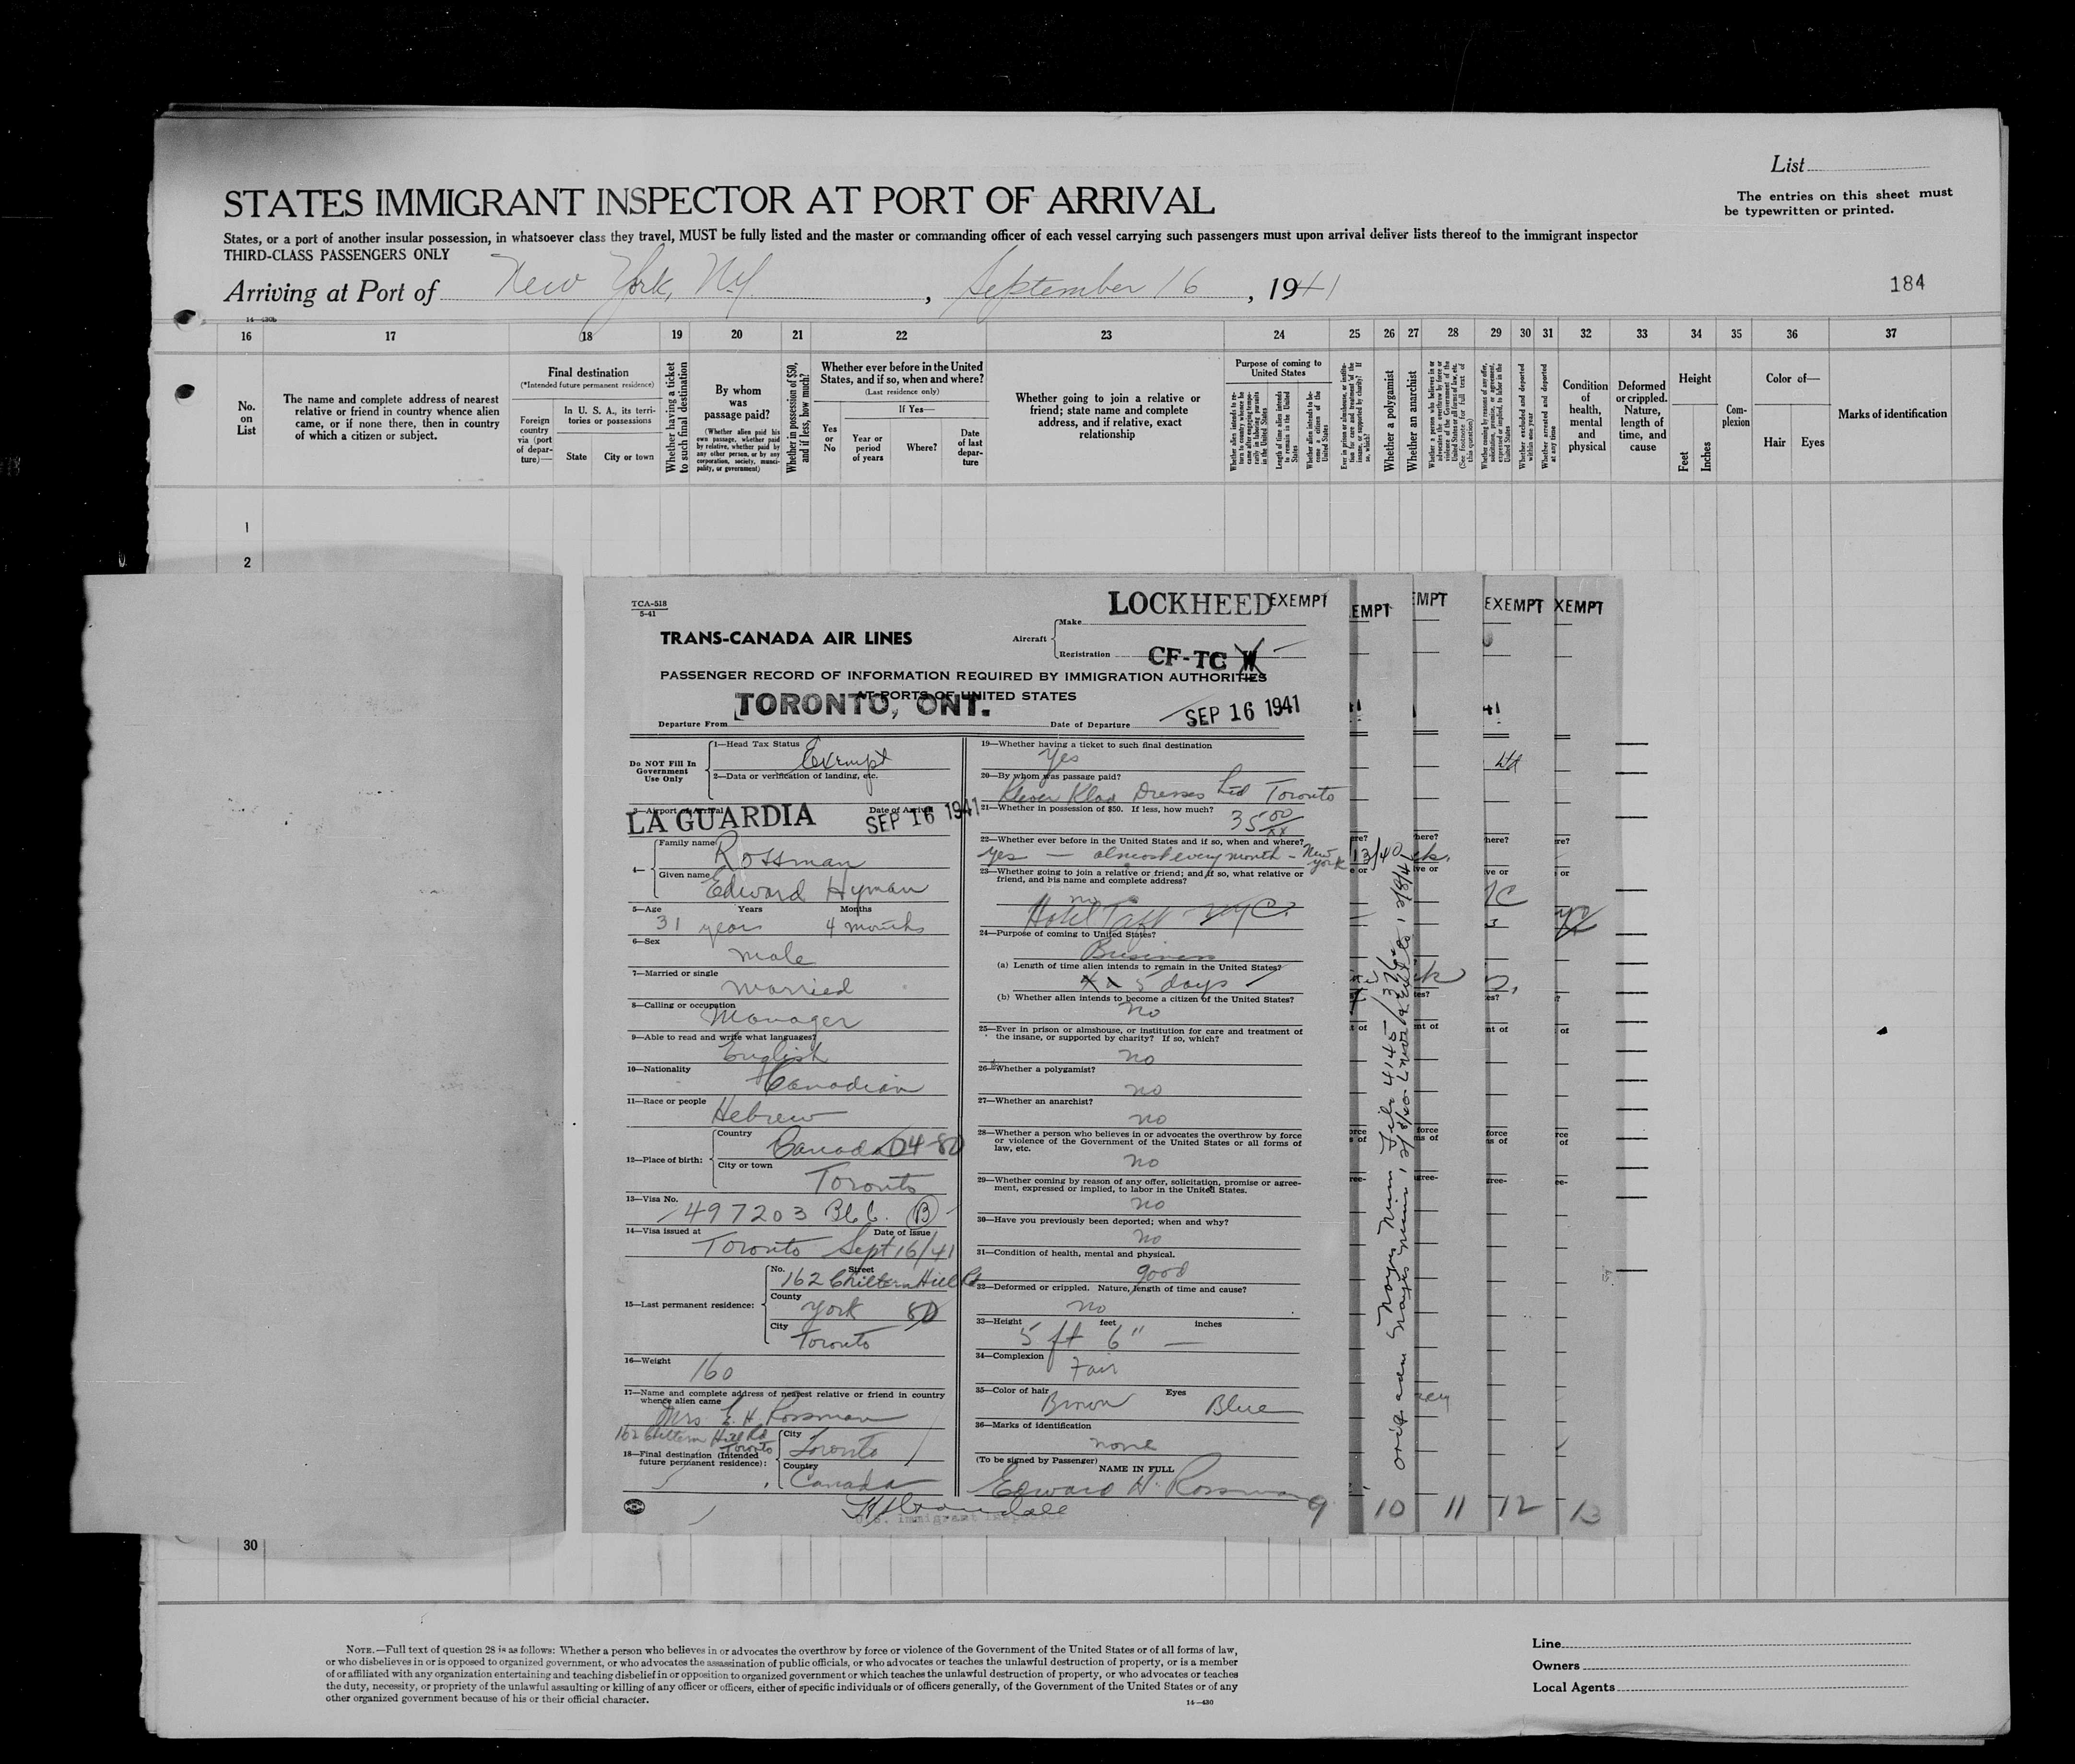 List
STATES IMMIGRANT INSPECTOR AT PORT OF ARRIVAL
The entries on this sheet must
be typewritten or printed.
States, or a port of another insular possession, in whatsoever class they travel, MUST be fully listed and the master or commanding officer of each vessel carrying such passengers must upon arrival deliver lists thereof to the immigrant inspector
THIRD-CLASS PASSENGERS ONLY
Arriving at Port of New York, N.Y. , September 16 , 1941
184
16 17 18 19 20 21 22 23 24 25 26 27 28 29 30 31 32 33 34 35 36 37
No. on List
The name and complete address of nearest relative or friend in country whence alien came, or if none there, then in country of which a citizen or subject.
Final destination
(*Intended future permanent residence)
Foreign country via (port of departure)—
In U. S. A., its territories or possessions
State
City or town
Whether having a ticket to such final destination
By whom was passage paid?
(Whether alien paid his own passage, whether paid by relative, whether paid by any other person, or by any corporation, society, municipality, or government)
Whether in possession of $50, and if less, how much?
Whether ever before in the United States, and if so, when and where?
(Last residence only)
Yes or No
If Yes—
Year or period of years
Where?
Date of last departure
Whether going to join a relative or friend; state name and complete address, and if relative, exact relationship
Purpose of coming to United States
Length of time alien intends to remain in the United States
Whether alien intends to become a citizen of the United States
Whether a polygamist
Whether an anarchist
Whether excluded and deported within one year
Whether arrested and deported at any time
Condition of health, mental and physical
Deformed or crippled. Nature, length of time, and cause
Height
Feet
Inches
Complexion
Color of—
Hair
Eyes
Marks of identification
1
2
TCA-518
5-41
LOCKHEED EXEMPT
TRANS-CANADA AIR LINES
Aircraft
Make
Registration CF-TC
PASSENGER RECORD OF INFORMATION REQUIRED BY IMMIGRATION AUTHORITIES
AT PORTS OF UNITED STATES
Departure From TORONTO, ONT.
Date of Departure SEP 16 1941
Do NOT Fill In
Government
Use Only
1—Head Tax Status Exempt
2—Data or verification of landing, etc.
3—Airport of Arrival LA GUARDIA
Date of Arrival SEP 16 1941
4—
Family name Rossman
Given name Edward Hyman
5—Age Years Months
31 years 4 months
6—Sex male
7—Married or single married
8—Calling or occupation Manager
9—Able to read and write what languages? English
10—Nationality Canadian
11—Race or people Hebrew
12—Place of birth:
Country Canada 04-80
City or town Toronto
13—Visa No. 497203 B
14—Visa issued at Date of Issue
Toronto Sept 16/41
15—Last permanent residence:
No. Street 162 Chiltern Hill Rd
County York 80
City Toronto
16—Weight 160
17—Name and complete address of nearest relative or friend in country
whence alien came
Mrs. E. H. Rossman
162 Chiltern Hill Rd
Toronto
18—Final destination (Intended
future permanent residence):
City Toronto
Country Canada
19—Whether having a ticket to such final destination
Yes
20—By whom was passage paid?
Klever Klad Dresses Ltd Toronto
21—Whether in possession of $50. If less, how much?
35 00/xx
22—Whether ever before in the United States and if so, when and where?
Yes — almost every month — New York
23—Whether going to join a relative or friend; and if so, what relative or
friend, and his name and complete address?
no
Hotel Taft NYC.
24—Purpose of coming to United States?
Business
(a) Length of time alien intends to remain in the United States?
5 days
(b) Whether alien intends to become a citizen of the United States?
No
25—Ever in prison or almshouse, or institution for care and treatment of
the insane, or supported by charity? If so, which?
no
26—Whether a polygamist?
no
27—Whether an anarchist?
no
28—Whether a person who believes in or advocates the overthrow by force
or violence of the Government of the United States or all forms of
law, etc.
no
29—Whether coming by reason of any offer, solicitation, promise or agree-
ment, expressed or implied, to labor in the United States.
no
30—Have you previously been deported; when and why?
no
31—Condition of health, mental and physical.
good
32—Deformed or crippled. Nature, length of time and cause?
no
33—Height feet inches
5 ft 6" —
34—Complexion
Fair
35—Color of hair Eyes
Brown Blue
36—Marks of identification
none
(To be signed by Passenger)
NAME IN FULL
Edward H. Rossman
U.S. Immigrant Inspector
9 10 11 12 13
EMPT
MPT
EXEMPT
XEMPT
30
NOTE.—Full text of question 28 is as follows: Whether a person who believes in or advocates the overthrow by force or violence of the Government of the United States or of all forms of law,
or who disbelieves in or is opposed to organized government, or who advocates the assassination of public officials, or who advocates or teaches the unlawful destruction of property, or is a member
of or affiliated with any organization entertaining and teaching disbelief in or opposition to organized government or which teaches the unlawful destruction of property, or who advocates or teaches
the duty, necessity, or propriety of the unlawful assaulting or killing of any officer or officers, either of specific individuals or of officers generally, of the Government of the United States or of any
other organized government because of his or their official character.
14—430
Line
Owners
Local Agents